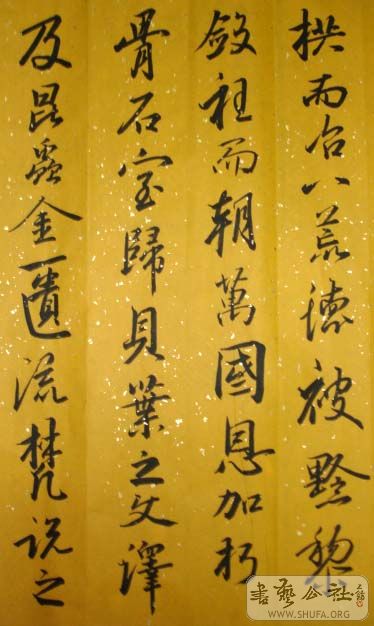 拱而治八荒德被黔黎
斂衽而朝萬國恩加朽
骨石室歸貝葉之文澤
及昆蟲金匱流梵説之
書藝公社
WWW.SHUFA.ORG